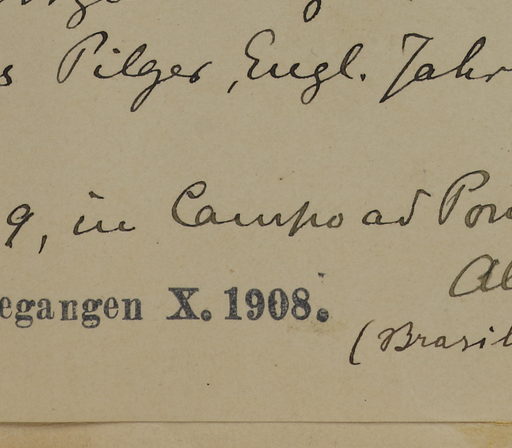 s Pilger, Engl. Jahr
9, in Campo ad Pon
egangen X. 1908.
Al
(Brasil